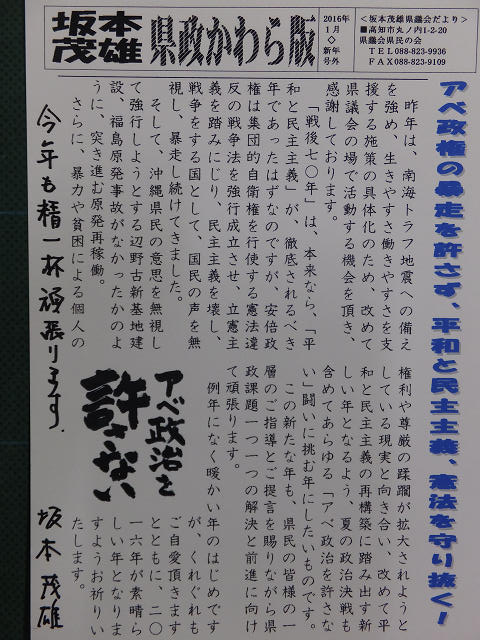 坂本茂雄
県政かわら版
2016年
1月
◇
新年
号外
<坂本茂雄県議会だより>
■高知市丸ノ内1-2-20
県議会県民の会
TEL088-823-9936
FAX088-823-9109
アベ政権の暴走を許さず、平和と民主主義、憲法を守り抜く!
昨年は、南海トラフ地震への備え
を強め、生きやすさ働きやすさを支
援する施策の具体化のため、改めて
県議会の場で活動する機会を頂き、
感謝しております。
「戦後七〇年」は、本来なら、「平
和と民主主義」が、徹底されるべき
年であったはずなのですが、安倍政
権は集団的自衛権を行使する憲法違
反の戦争法を強行成立させ、立憲主
義を踏みにじり、民主主義を壊し、
戦争をする国として、国民の声を無
視し、暴走し続けてきました。
そして、沖縄県民の意思を無視し
て強行しようとする辺野古新基地建
設、福島原発事故がなかったかのよ
うに、突き進む原発再稼働。
さらに、暴力や貧困による個人の
権利や尊厳の蹂躙が拡大されようと
している現実と向き合い、改めて平
和と民主主義の再構築に踏み出す新
しい年となるよう、夏の政治決戦も
含めてあらゆる「アベ政治を許さな
い」闘いに挑む年にしたいものです。
この新たな年も、県民の皆様の一
層のご指導とご提言を賜りながら県
政課題一つ一つの解決と前進に向け
て頑張ります。
例年になく暖かい年のはじめです
が、くれぐれも
ご自愛頂きます
とともに、二〇
一六年が素晴ら
しい年となりま
すようお祈りい
たします。
アベ政治を
許さない
今年も精一杯頑張ります.
坂本茂雄